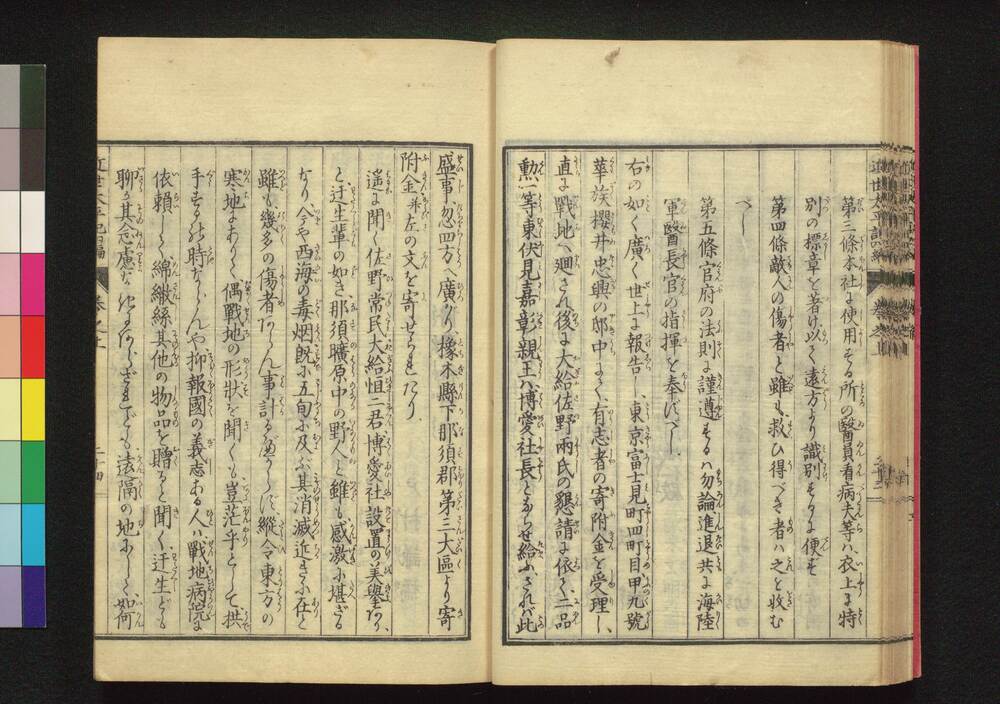 第三條本社に使用する所の醫員看病夫等ハ、衣上に特
別の標章を著け、以て遠方より識別するに便す
第四條敵人の傷者と雖も、救ひ得べき者ハ之を收む
べし
第五條官府の法則に謹遵するハ勿論進退共に海陸
軍醫長官の指揮を奉ずべし
右の如く廣く世上に報告し、東京富士見町四町目甲九號
華族櫻井忠興の邸中にて、有志者の寄附金を受理し、
直に戰地へ廻され後に大給佐野兩氏の懇請に依て二品
勲一等東伏見嘉彰親王ハ、博愛社長とならせ給ふ、されバ此
盛事忽四方へ廣がり、櫞木縣下那須郡第三大區より寄
附金并左の文を寄せられたり
遥に聞く佐野常民大給恒二君博愛社設置の美擧あり、
と迂生輩の如き、那須曠原中の野人と雖も感激に堪ざる
なり、今や西海の毒烟既に五旬に及ぶ其消滅近きに在と
雖も幾多の傷者あらん事計るべからず、縱令東方の
寒地にありて、偶戰地の形狀を聞くも豈茫乎として拱
手するの時ならんや、抑報國の義志ある人ハ戰地病院に
依頼し、綿繖絲其他の物品を贈ると聞く迂生ども
聊其念慮なきにあらざれども遠隔の地にして如何
近世太平記二編
卷之上